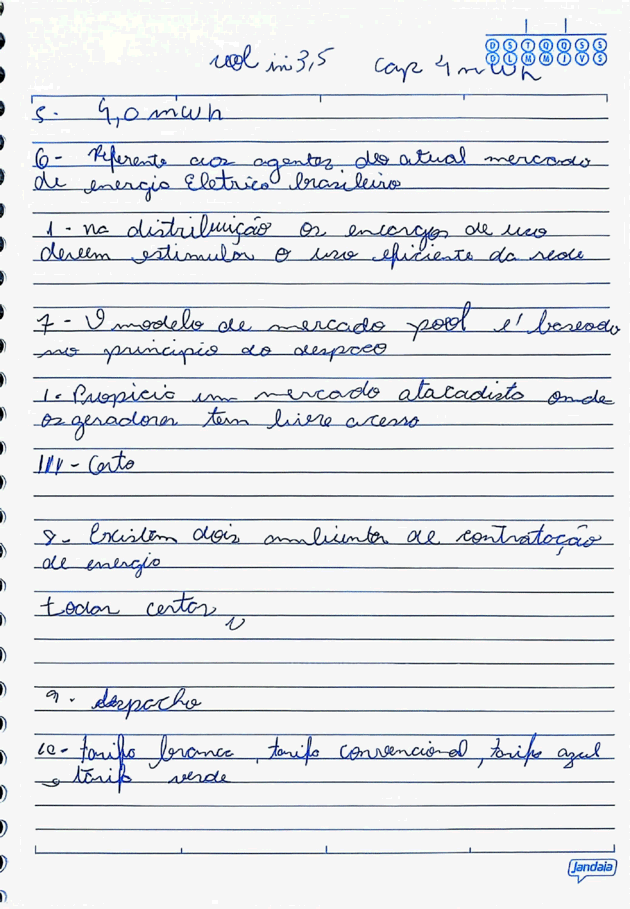 D S T Q Q S S
D L M M J V S
vol in 3,5 cap 4 mwh
5- 4,0 mwh
6- Referente aos agentes do atual mercado
de energia Eletrico brasileiro
1- na distribuição os encargos de uso
devem estimular o uso eficiente da rede
7- O modelo de mercado pool e' baseado
no principio do
1- Propicia um mercado atacadista onde
os geradores tem livre acesso
III- Certo
8- Existem dois ambientes de contratação
de energia
todas certas
9- despacho
10- tarifa branca, tarifa convencional, tarifa azul
e tarifa verde
Jandaia